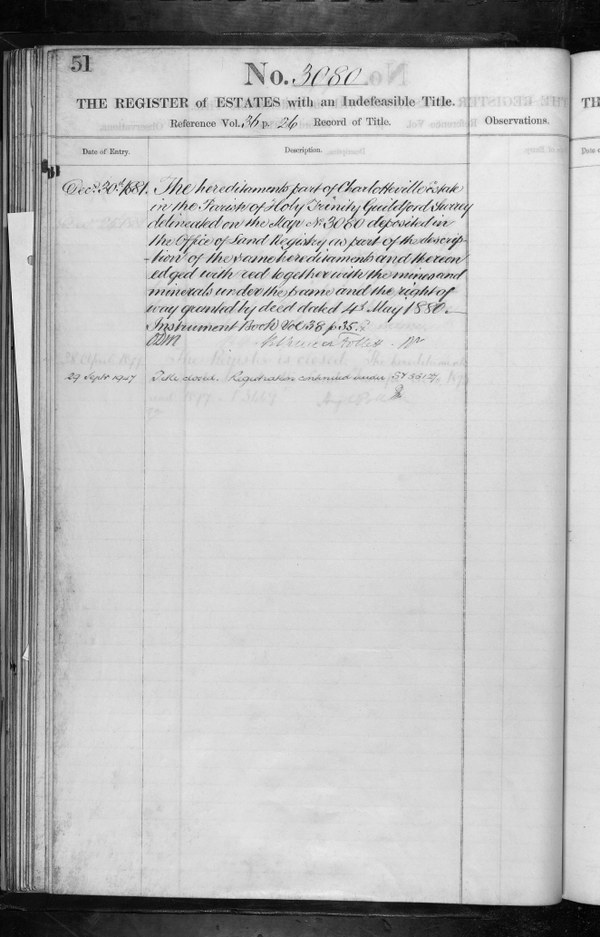 51
No. 3080
THE REGISTER of ESTATES with an Indefeasible Title.
Reference Vol. 36 p. 26 Record of Title.
Observations.
Date of Entry.
Description.
Decr. 30th 1881. The hereditaments part of Charlotteville Estate
in the Parish of Holy Trinity Guildford Surrey
delineated on the Map No 3080 deposited in
the Office of Land Registry as part of the descrip-
-tion of the same hereditaments and thereon
edged with red together with the mines and
minerals under the same and the right of
way granted by deed dated 4th May 1880.
Instrument Book Vol 38 p 35.
29 Sept 1947 Title closed. Registration continued under